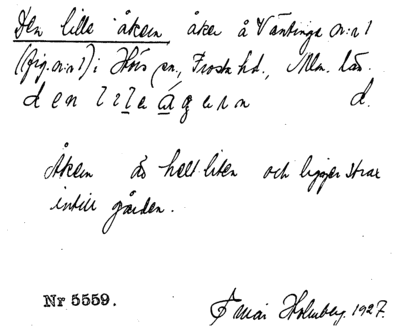 Den lille åkern åker å Väntinge n:r 1
(fig. n:r 1) i Hörs sn., Frosta hd., Mlm. län.
den lille ågeṛn d.
Åkern är helt liten och ligger strax
intill gården.
Nr 5559.
Holmberg. 1927.